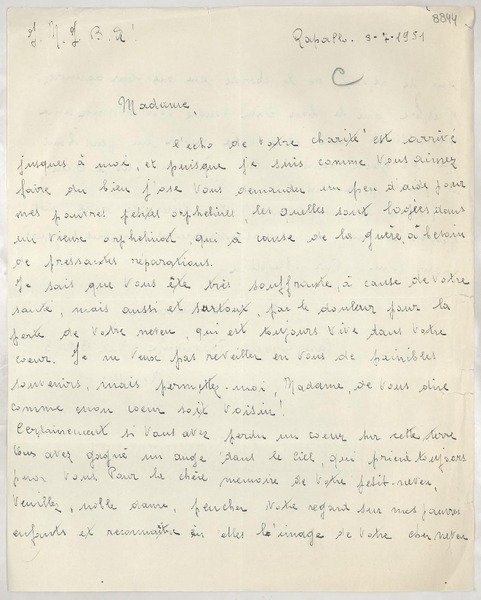 8844
J. M. J. B. A!
Rapallo. 3-7-1951
C
Madame,
l'echo de Votre charité est arrivé
jusques à moi, et puisque je suis comme Vous aimez
faire du bien j'ose Vous demander un peu d'aide pour
mes pauvres petites orphelines, les quelles sont logées dans
un vieux orphelinat, qui à cause de la guère, à besoin
de pressantes réparations.
Je sais que Vous ête très souffrante, à cause de Votre
santé, mais aussi et surtoux, par le douleur pour la
perte de Votre neveu, qui est toujours vive dans Votre
coeur. Je ne Veux pas réveiller en Vous de painibles
souvenirs, mais permettez-moi, Madame, de Vous dire
comme mon coeur soit Voisin!
Certainement si Vous avez perdu un coeur sur cette terre
Vous avez gagné un ange dans le Ciel, qui prient toujours
pour Vous. Pour la chère memoire de Votre petit-neveu,
Veuillez, noble dame, pencher Votre regard sur mes pauvres
enfants et reconnaître en elles l'image de Votre cher neveu